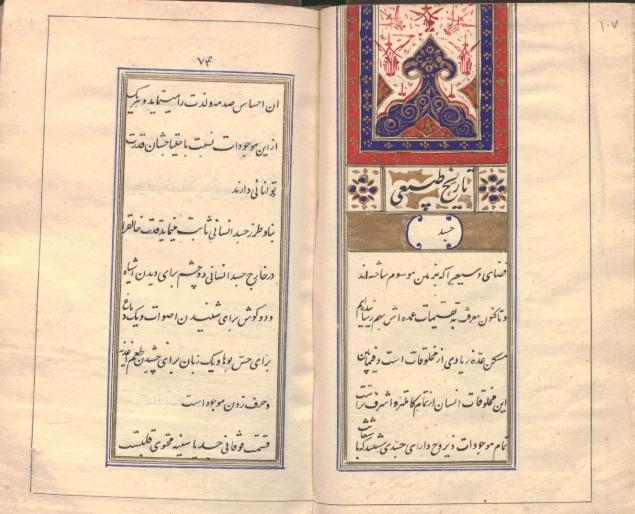 ۱۰۷
تاریخ طبیعی
جسد
فضای وسیعی که بزمین موسوم ساخته‌اند
و تاکنون معرفت به تقسیمات عمده اش بهم رسانیدیم
مسکن عده زیادی از مخلوقات است و فیمابین
این مخلوقات انسان از تمام کاملتر و اشرف تر است
تمام موجودات ذیروح دارای جسدی هستند که با
۷۴
ان احساس صدمه و لذت را مینماید و هر یک
از این موجودات نسبت باحتیاجشان قدرت
و توانائی دارند
بنا و طرز جسد انسانی ثابت مینماید قدرت خالق را
در خارج جسد انسانی دو چشم برای دیدن اشیاء
و دو گوش برای شنیدن اصوات و یک دماغ
برای حس بوها و یک زبان برای چشیدن طعم اغذیه
و حرف زدن موجود است
قسمت فوقانی جسد یا سینه محتوی قلبست